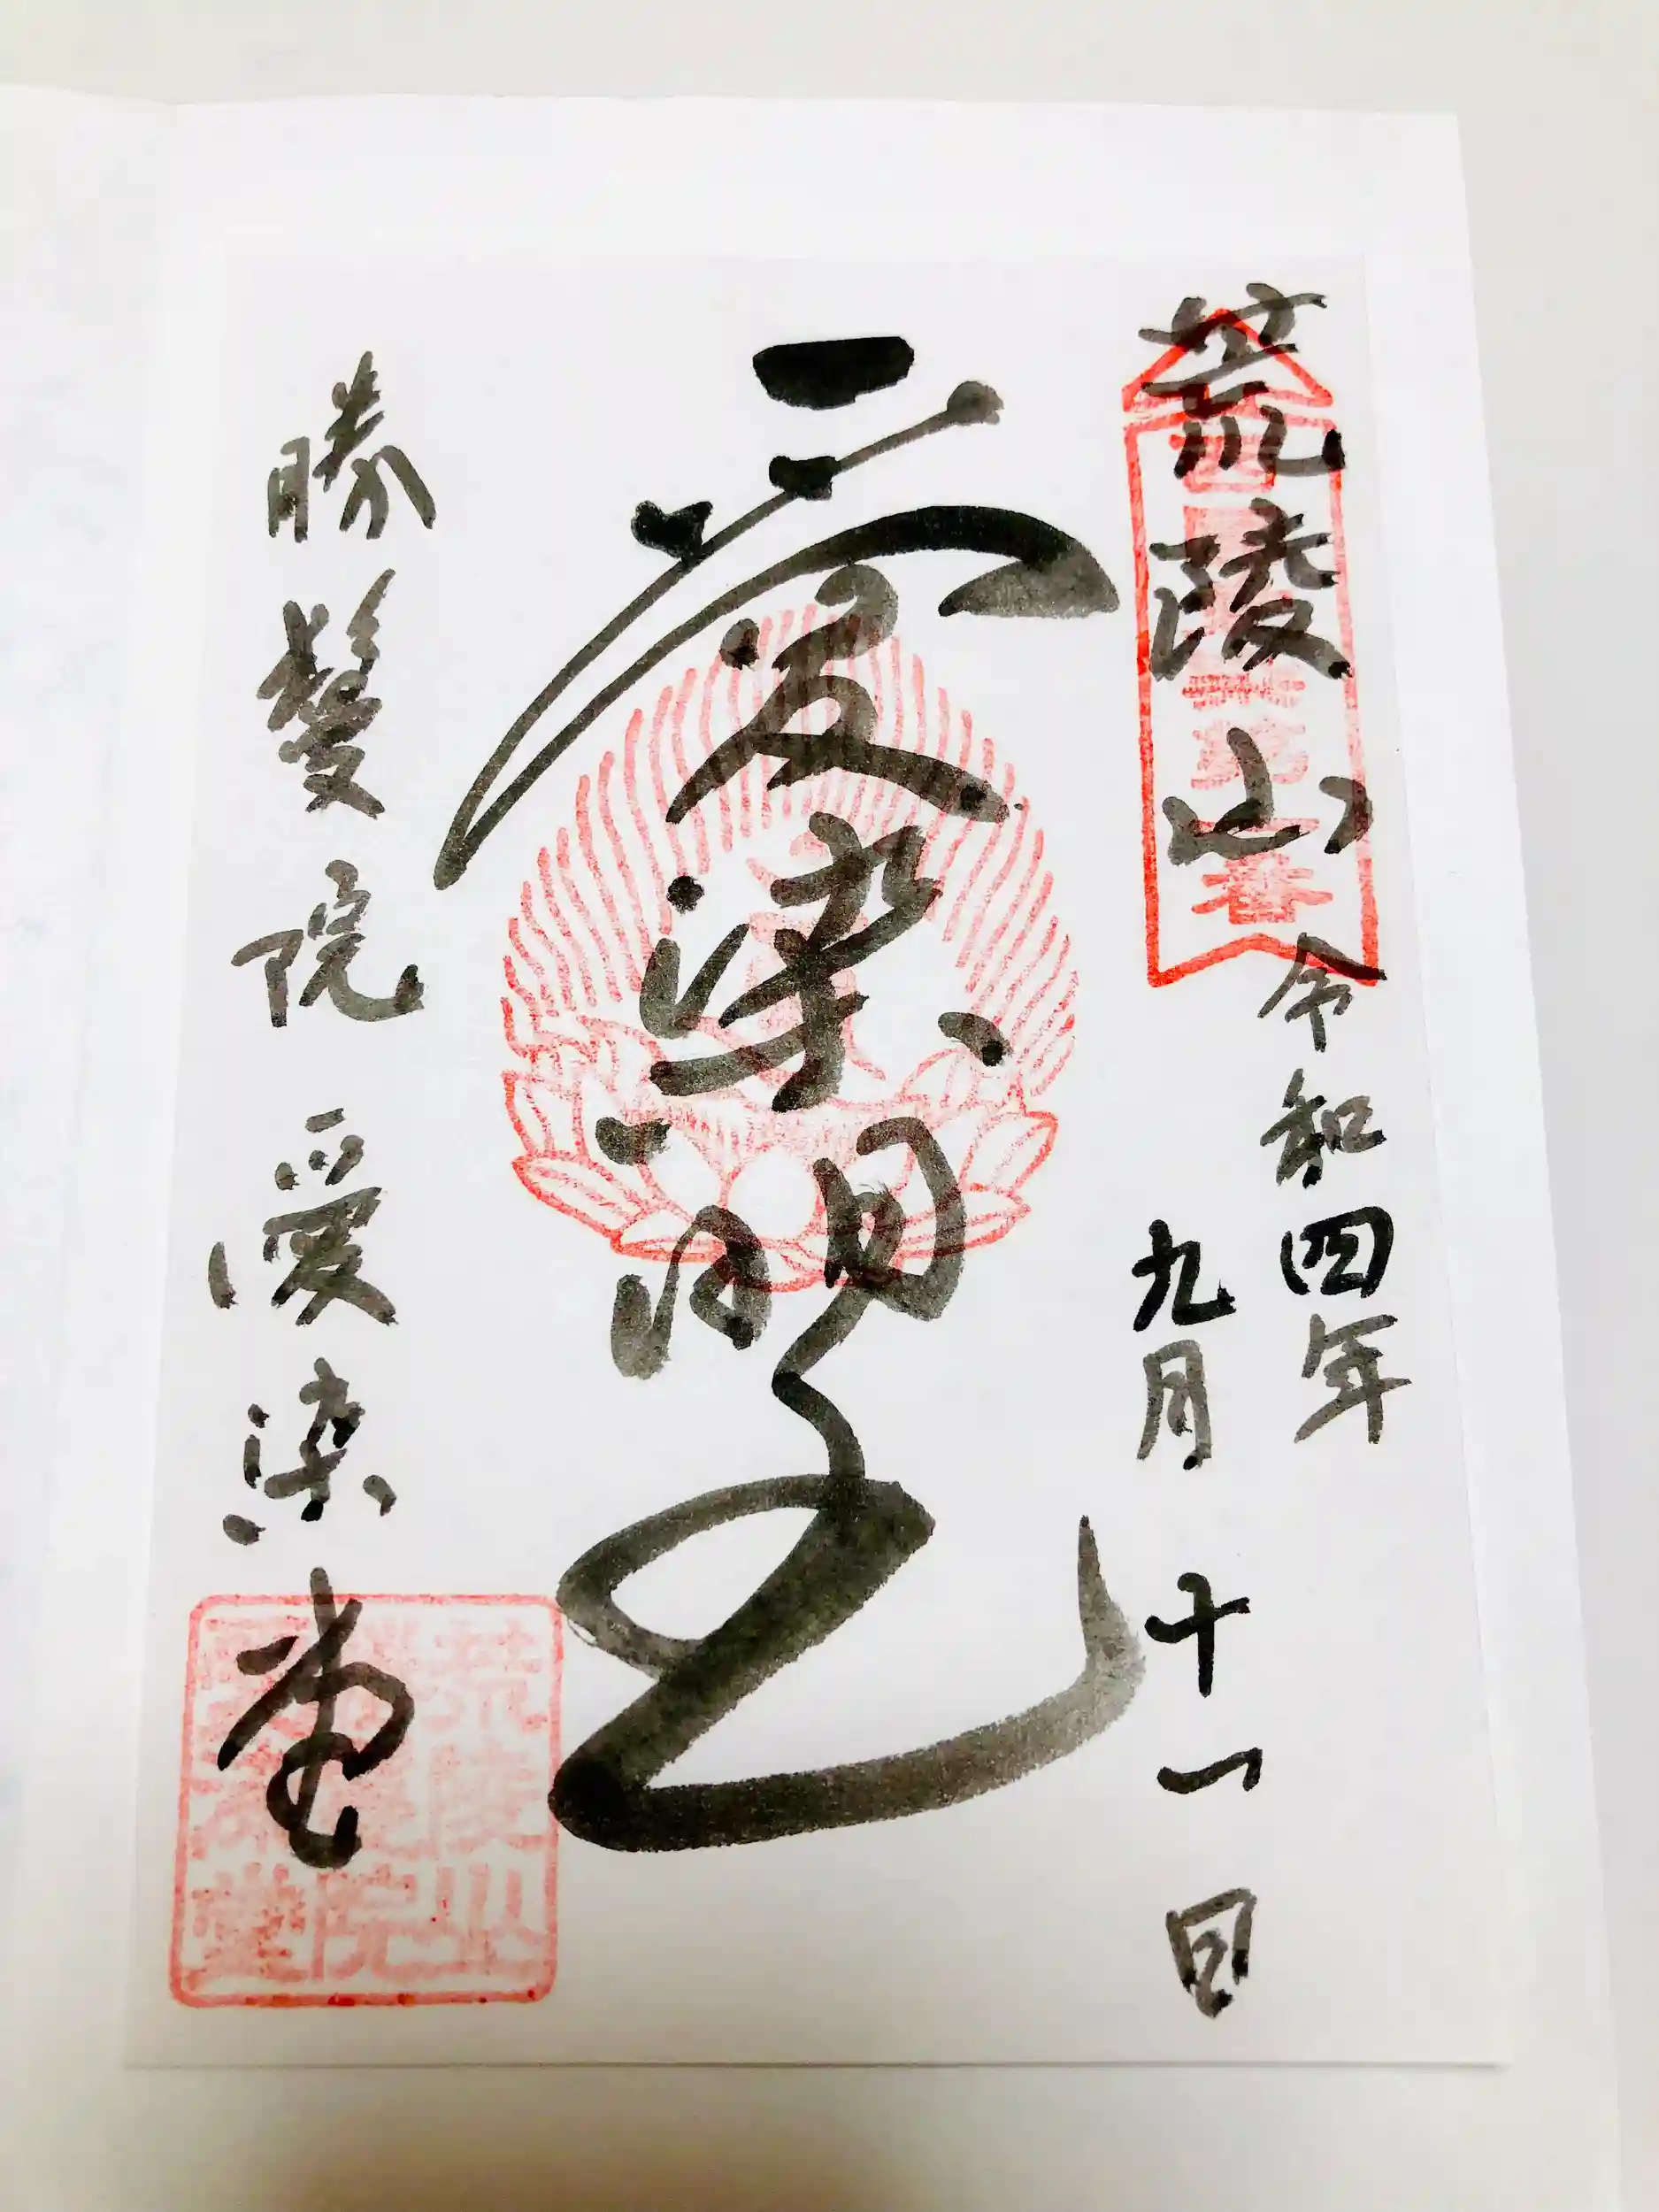 荒陵山
令和四年
九月十一日
愛染明王
勝鬘院愛染堂
荒陵山
勝鬘院
愛染堂